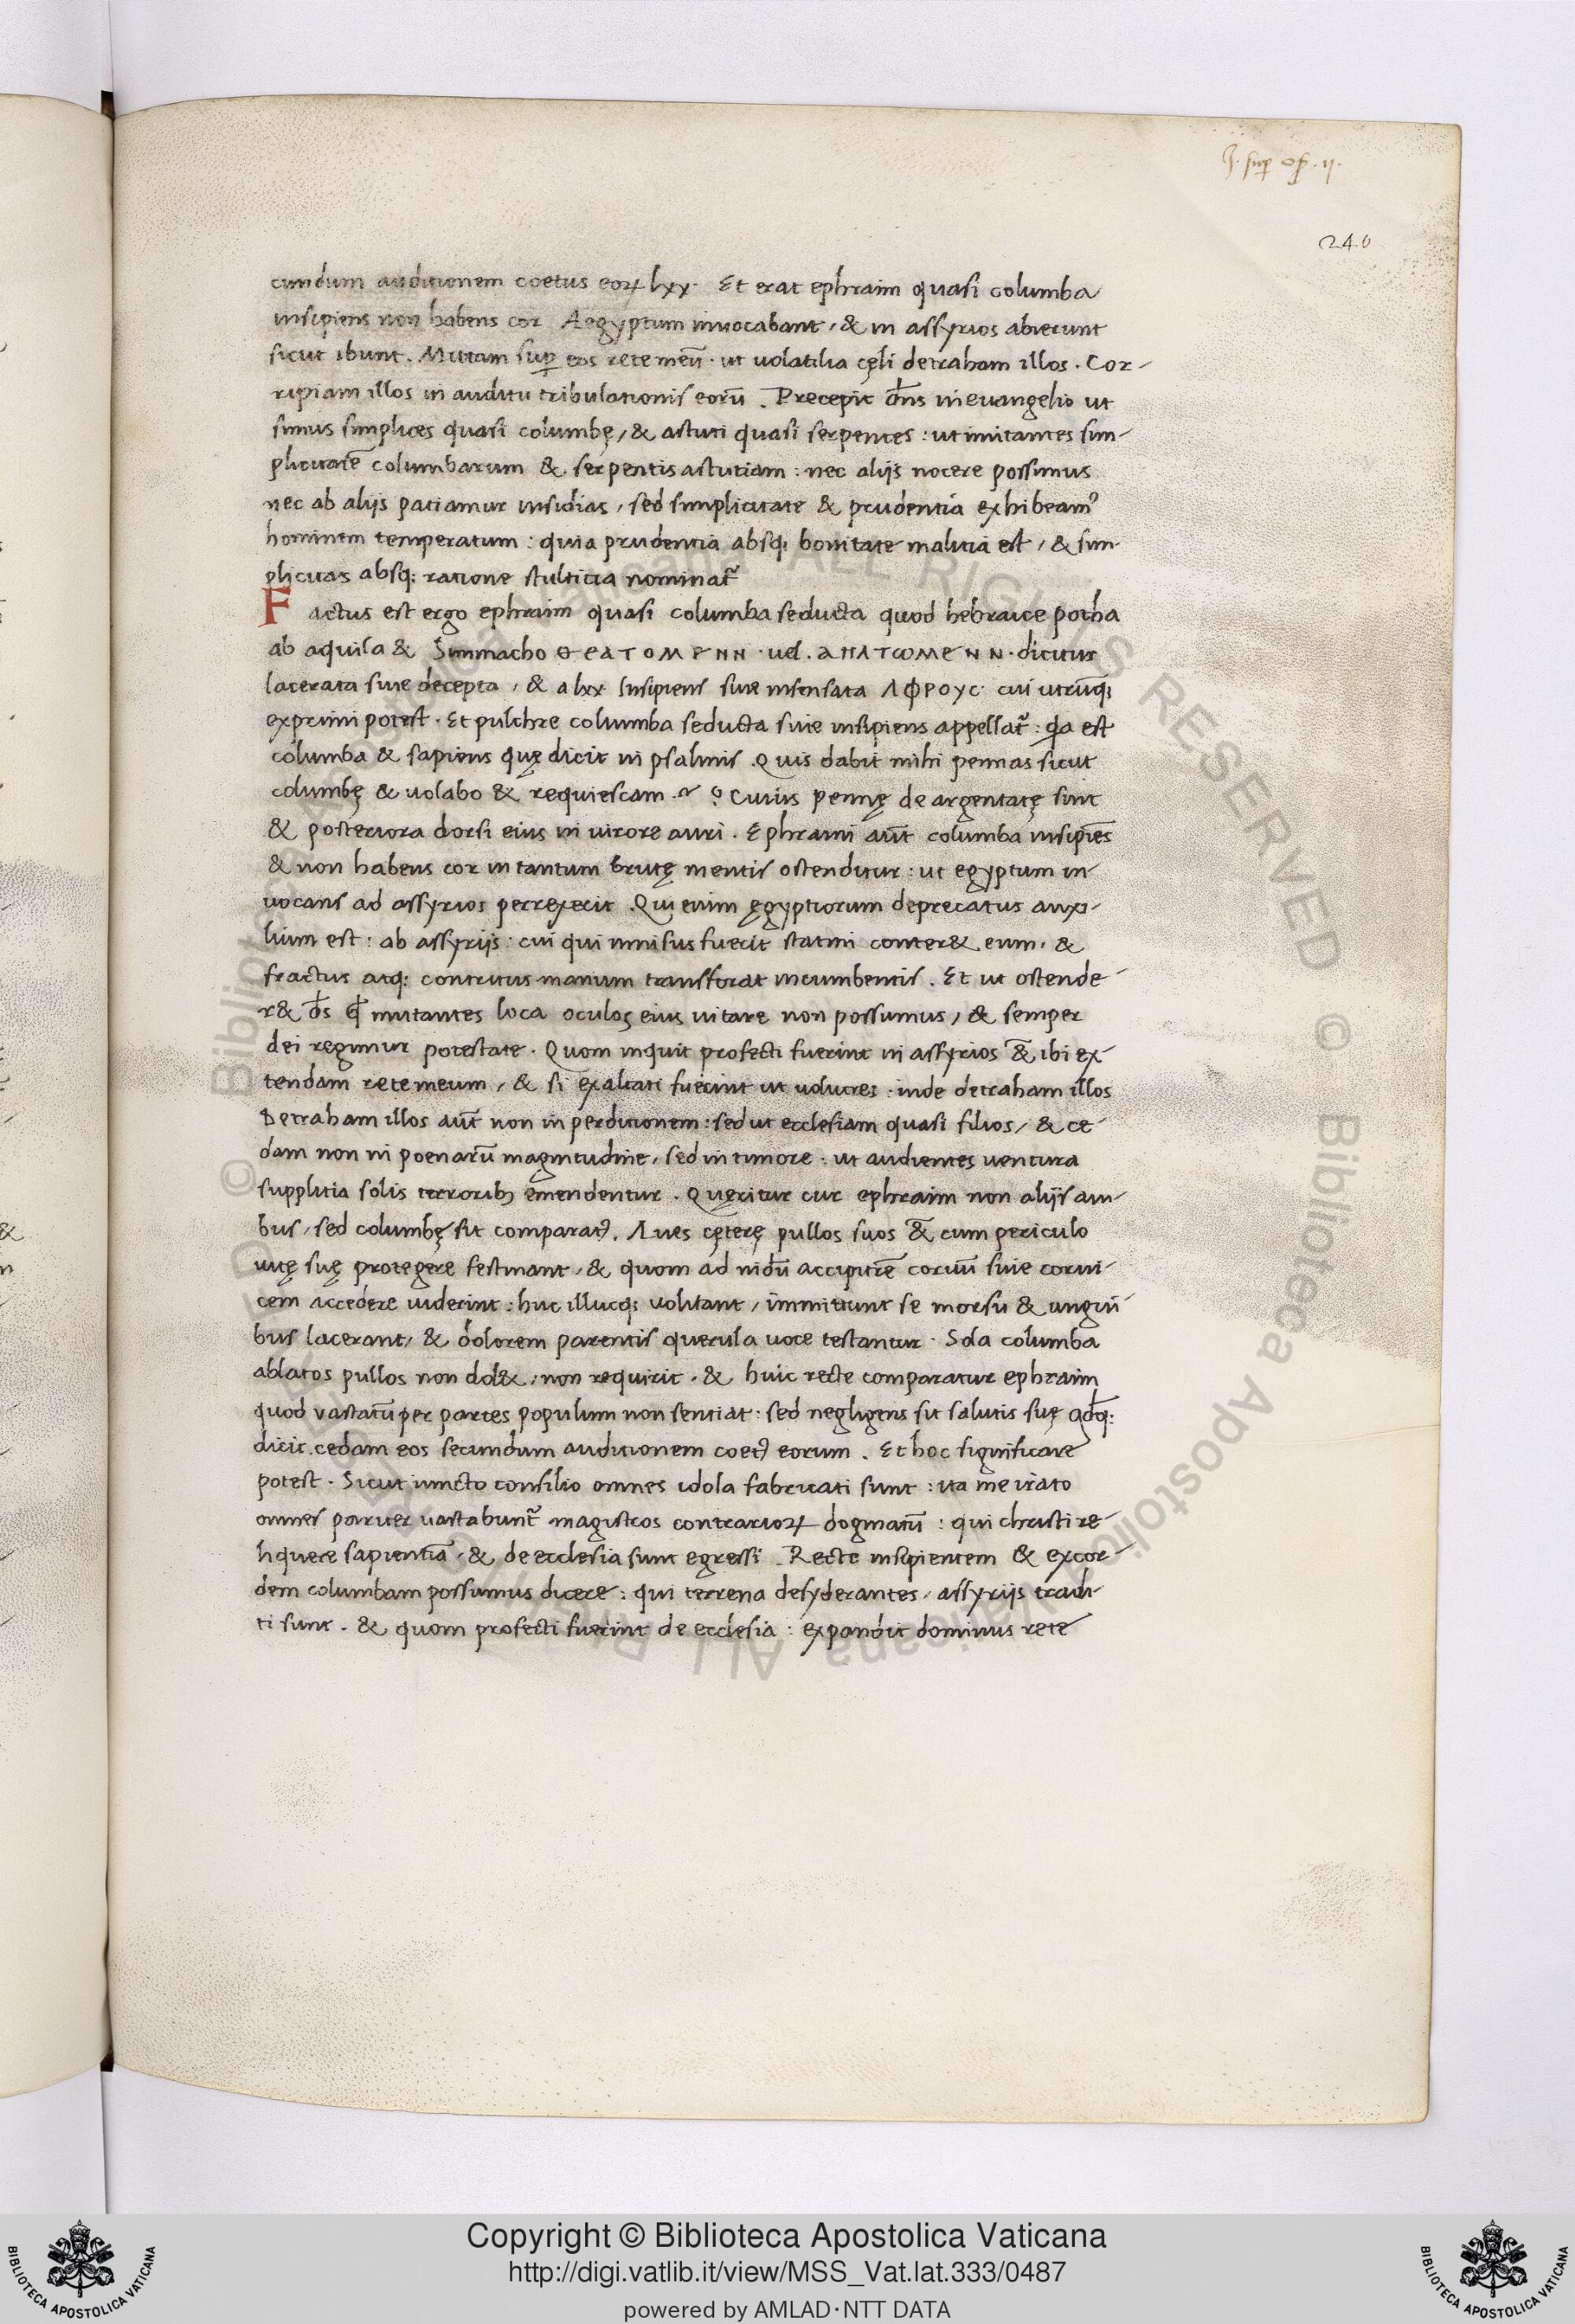 J. sup os. ij.
240
cundum auditionem coetus eoꝝ lxx. Et erat ephraim quasi columba
insipiens non habens cor Aegyptum inuocabant, & in assyrios abierunt
sicut ibunt. Mittam suꝑ eos rete meū. ut uolatilia cęli detraham illos. Cor-
ripiam illos in auditu tribulationis eorū. Precepit dn̄s in euangelio ut
simus simplices quasi columbę, & astuti quasi serpentes: ut imitantes sim-
plicitatē columbarum & serpentis astutiam: nec alijs nocere possimus
nec ab alijs patiamur insidias, sed simplicitate & prudentia exhibeamꝰ
hominem temperatum: quia prudentia absq; bonitate malitia est, & sim-
plicitas absq; ratione stultitia nominat᷑
Factus est ergo ephraim quasi columba seducta quod hebraice potha
ab aquila & Simmacho ΘΕΑΤΟΜΕΝΝ. uel. ΑΠΑΤΩΜΕΝΝ. dicitur
lacerata siue decepta, & a lxx Insipiens siue insensata ΑΦΡΟΥϹ. cui utrūq;
exprimi potest. Et pulchre columba seducta siue insipiens appellat᷑: qa est
columba & sapiens quę dicit in psalmis. Quis dabit mihi pennas sicut
columbę & uolabo & requiescam. ? Cuius pennę de argentatę sunt
& posteriora dorsi eius in uirore auri. Ephraim aūt columba insipiēs
& non habens cor in tantum brutę mentis ostenditur: ut egyptum in-
uocans ad assyrios perrexerit. Qui enim ęgyptiorum deprecatus auxi-
lium est: ab assyrijs: cui qui innisus fuerit statim conter& eum, &
fractus atq; contritus manum transforat incumbentis. Et ut ostende-
r& d̄s ꝙ mutantes loca oculos eius uitare non possumus, & semper
dei regimur potestate. Quom inquit profecti fuerint in assyrios & ibi ex-
tendam rete meum, & si exaltati fuerint ut uolucres. inde detraham illos
Detraham illos aūt non in perditionem: sed ut ecclesiam quasi filios, & ce-
dam non in poenarū magnitudine, sed in timore: ut audientes uentura
supplitia solis terrorib; emendentur. Quęritur cur ephraim non alijs aui-
bus, sed columbę sit comparatꝰ. Aues cęterę pullos suos & cum periculo
uitę suę protegere festinant, & quom ad nidū accipitrē coruū siue corni-
cem accedere uiderint: huc illucq; uolitant, immittunt se morsu & ungui-
bus lacerant, & dolorem parentis querula uoce testantur. Sola columba
ablatos pullos non dol&, non requirit. & huic recte comparatur ephraim
quod vastatū per partes populum non sentiat: sed negligens sit salutis suę
dicit. cedam eos secundum auditionem coetꝰ eorum. Et hoc significare
potest. Sicut iuncto consilio omnes idola fabricati sunt: ita me irato
omnes pariter uastabunt᷑ magistros contrarioꝝ dogmatū: qui christi re-
liquere sapientiā, & de ecclesia sunt egressi. Recte insipientem & excor-
dem columbam possumus dicere: qui terrena desyderantes, assyrijs tradi-
ti sunt. & quom profecti fuerint de ecclesia: expandit dominus rete
© Biblioteca Apostolica Vaticana ALL RIGHTS RESERVED
Copyright © Biblioteca Apostolica Vaticana
http://digi.vatlib.it/view/MSS_Vat.lat.333/0487
powered by AMLAD·NTT DATA
BIBLIOTECA APOSTOLICA VATICANA
BIBLIOTECA APOSTOLICA VATICANA